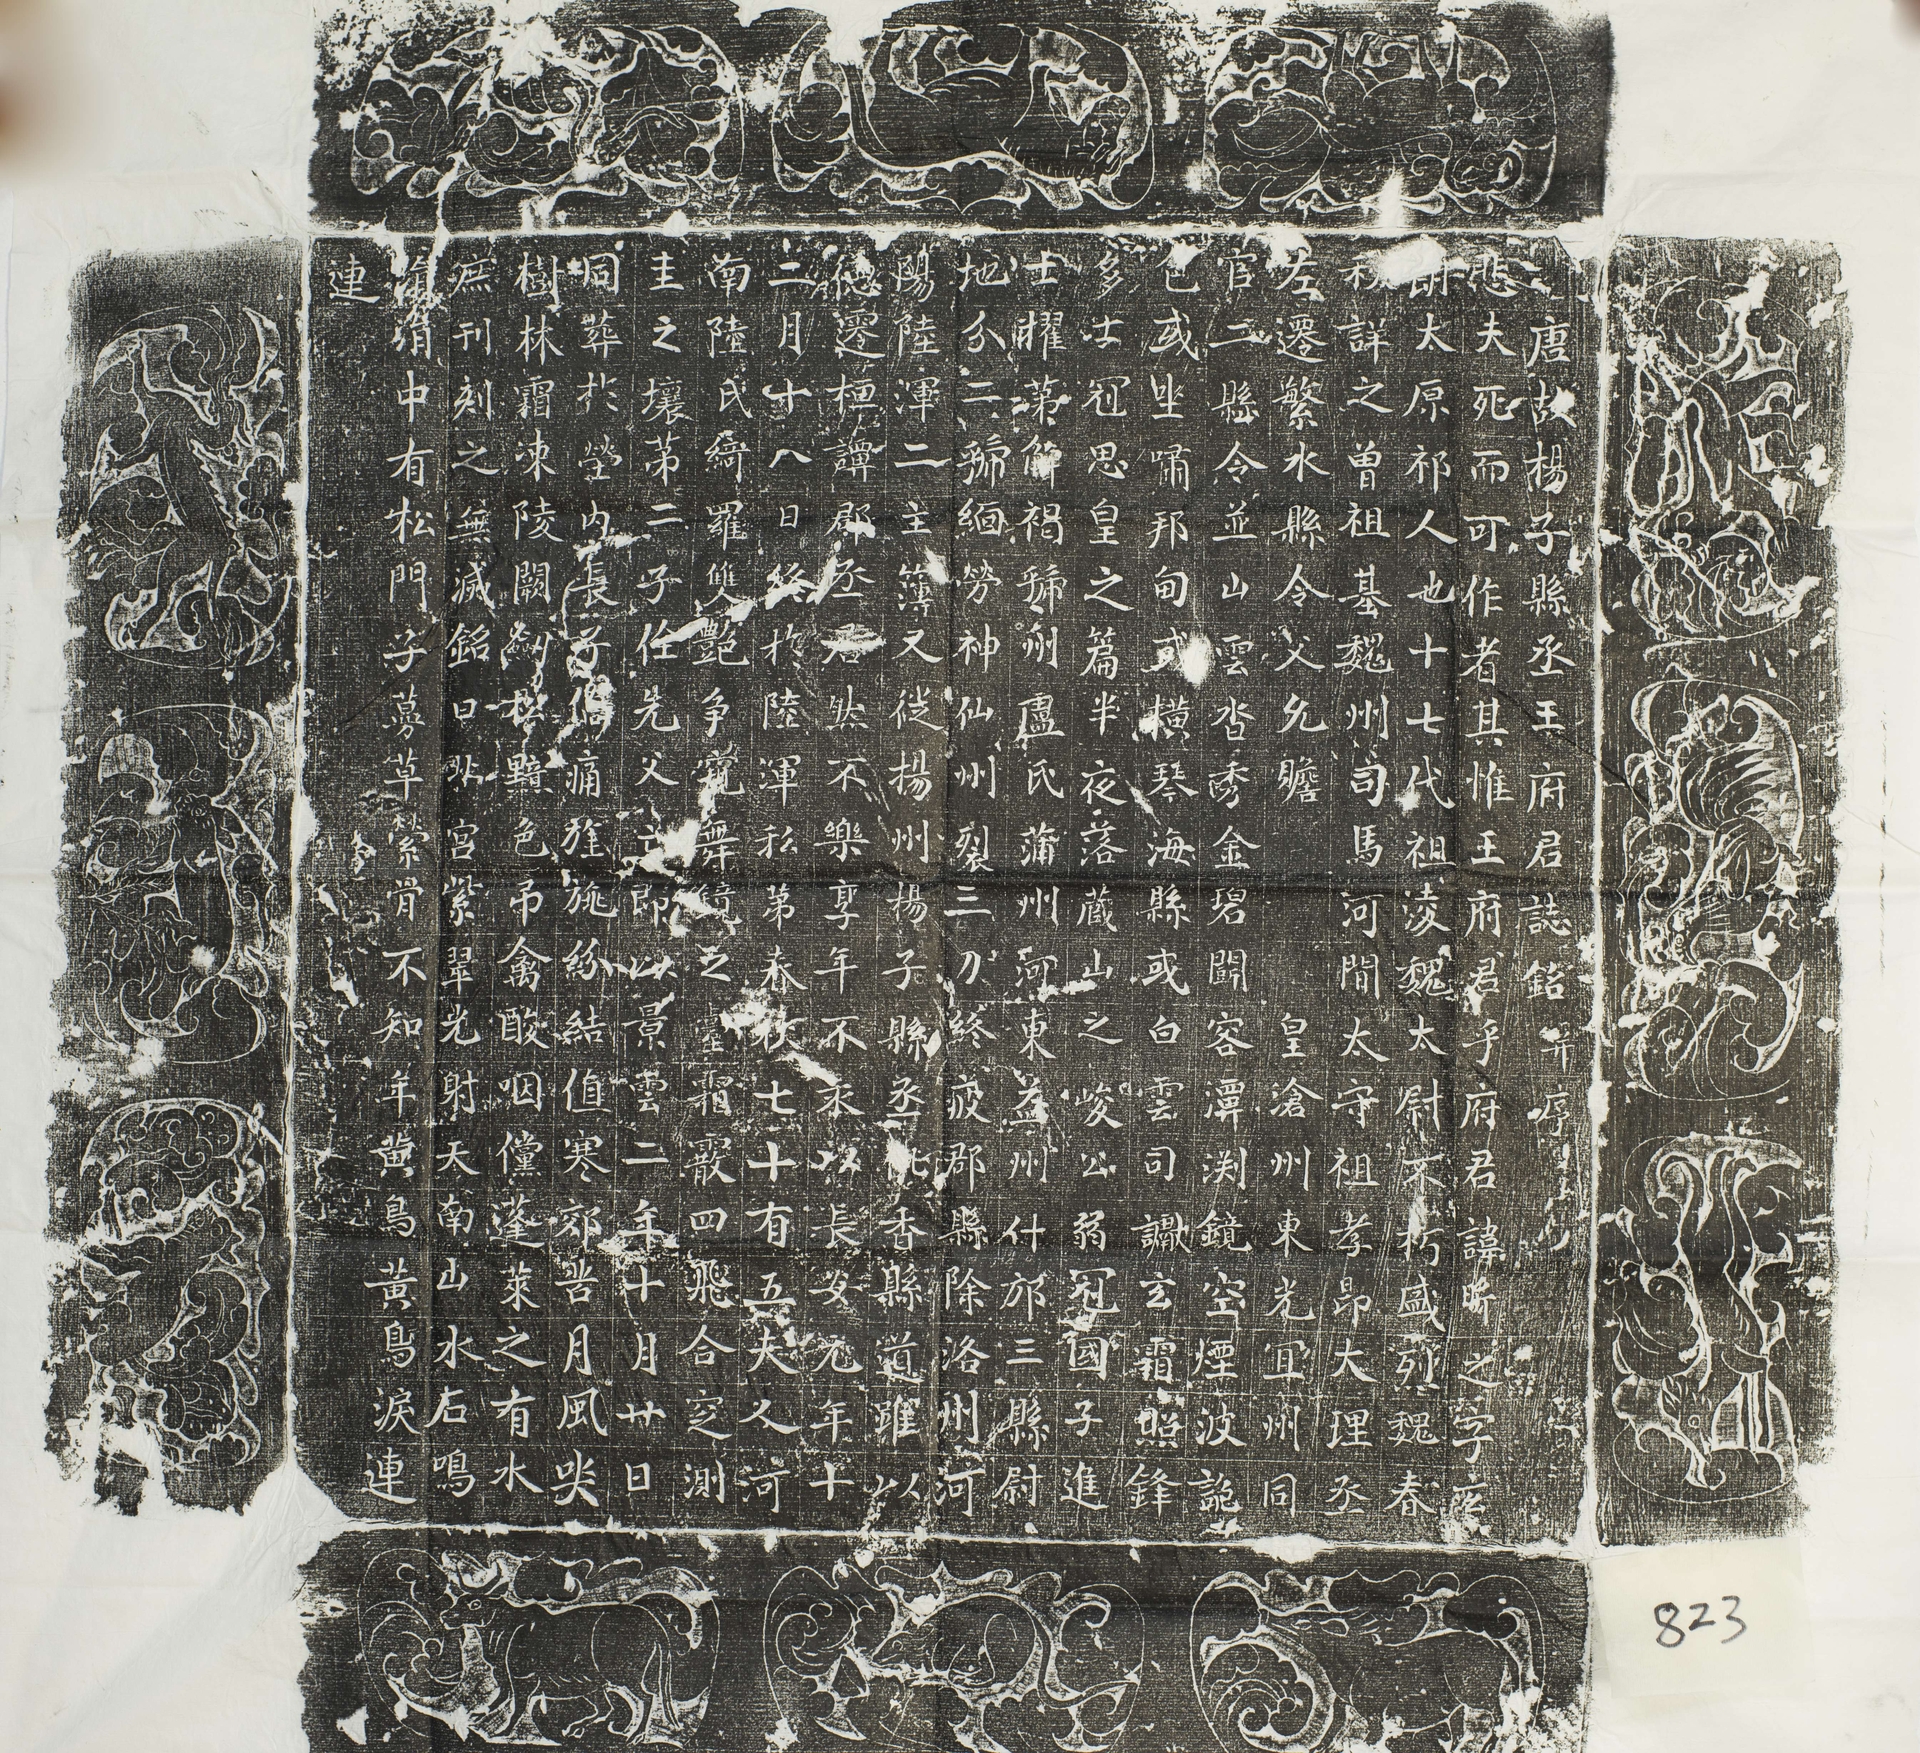 唐故楊子縣丞王府君誌銘并序
悲夫死而可作者其惟王府君乎府君諱昕之字
太原祁人也十七代祖淩魏太尉不朽盛烈魏春
秋詳之曾祖基魏州司馬河間太守祖孝昂大理丞
左遷繁水縣令父允瞻皇滄州東光宜州同
官二縣令並山雲沓秀金碧鬪容潭渕鏡空煙波詭
色或坐嘯邦甸或橫琴海縣或白雲司讞玄霜照鋒
多士冠思皇之篇半夜落藏山之峻公弱冠國子進
士擢第解褐虢州盧氏蒲州河東益州什邡三縣尉
地分二虢緬勞神仙州裂三刀終疲郡縣除洛州河
陽陸渾二主簿又徙揚州楊子縣丞香縣道雖以
德遷桓譚郡丞君然不樂享年不永以長安元年十
二月十八日終於陸渾私第春秋七十有五夫人河
南陸氏綺羅雙艷爭鸞舞鏡之臺霜霰四飛合穸測
圭之壤第二子任先父亡即以景雲二年十月廿日
同葬於塋內長子侗痛旌旐紛結值寒郊苦月風哭
樹林霜凍陵闕斂松黯色吊禽酸咽儻蓬萊之有水
庶刊刻之無滅銘曰
臥宮紫翠光射天南山水石鳴
涓中有松門子蒡草縈骨不知年黃鳥黃鳥淚連
連
823